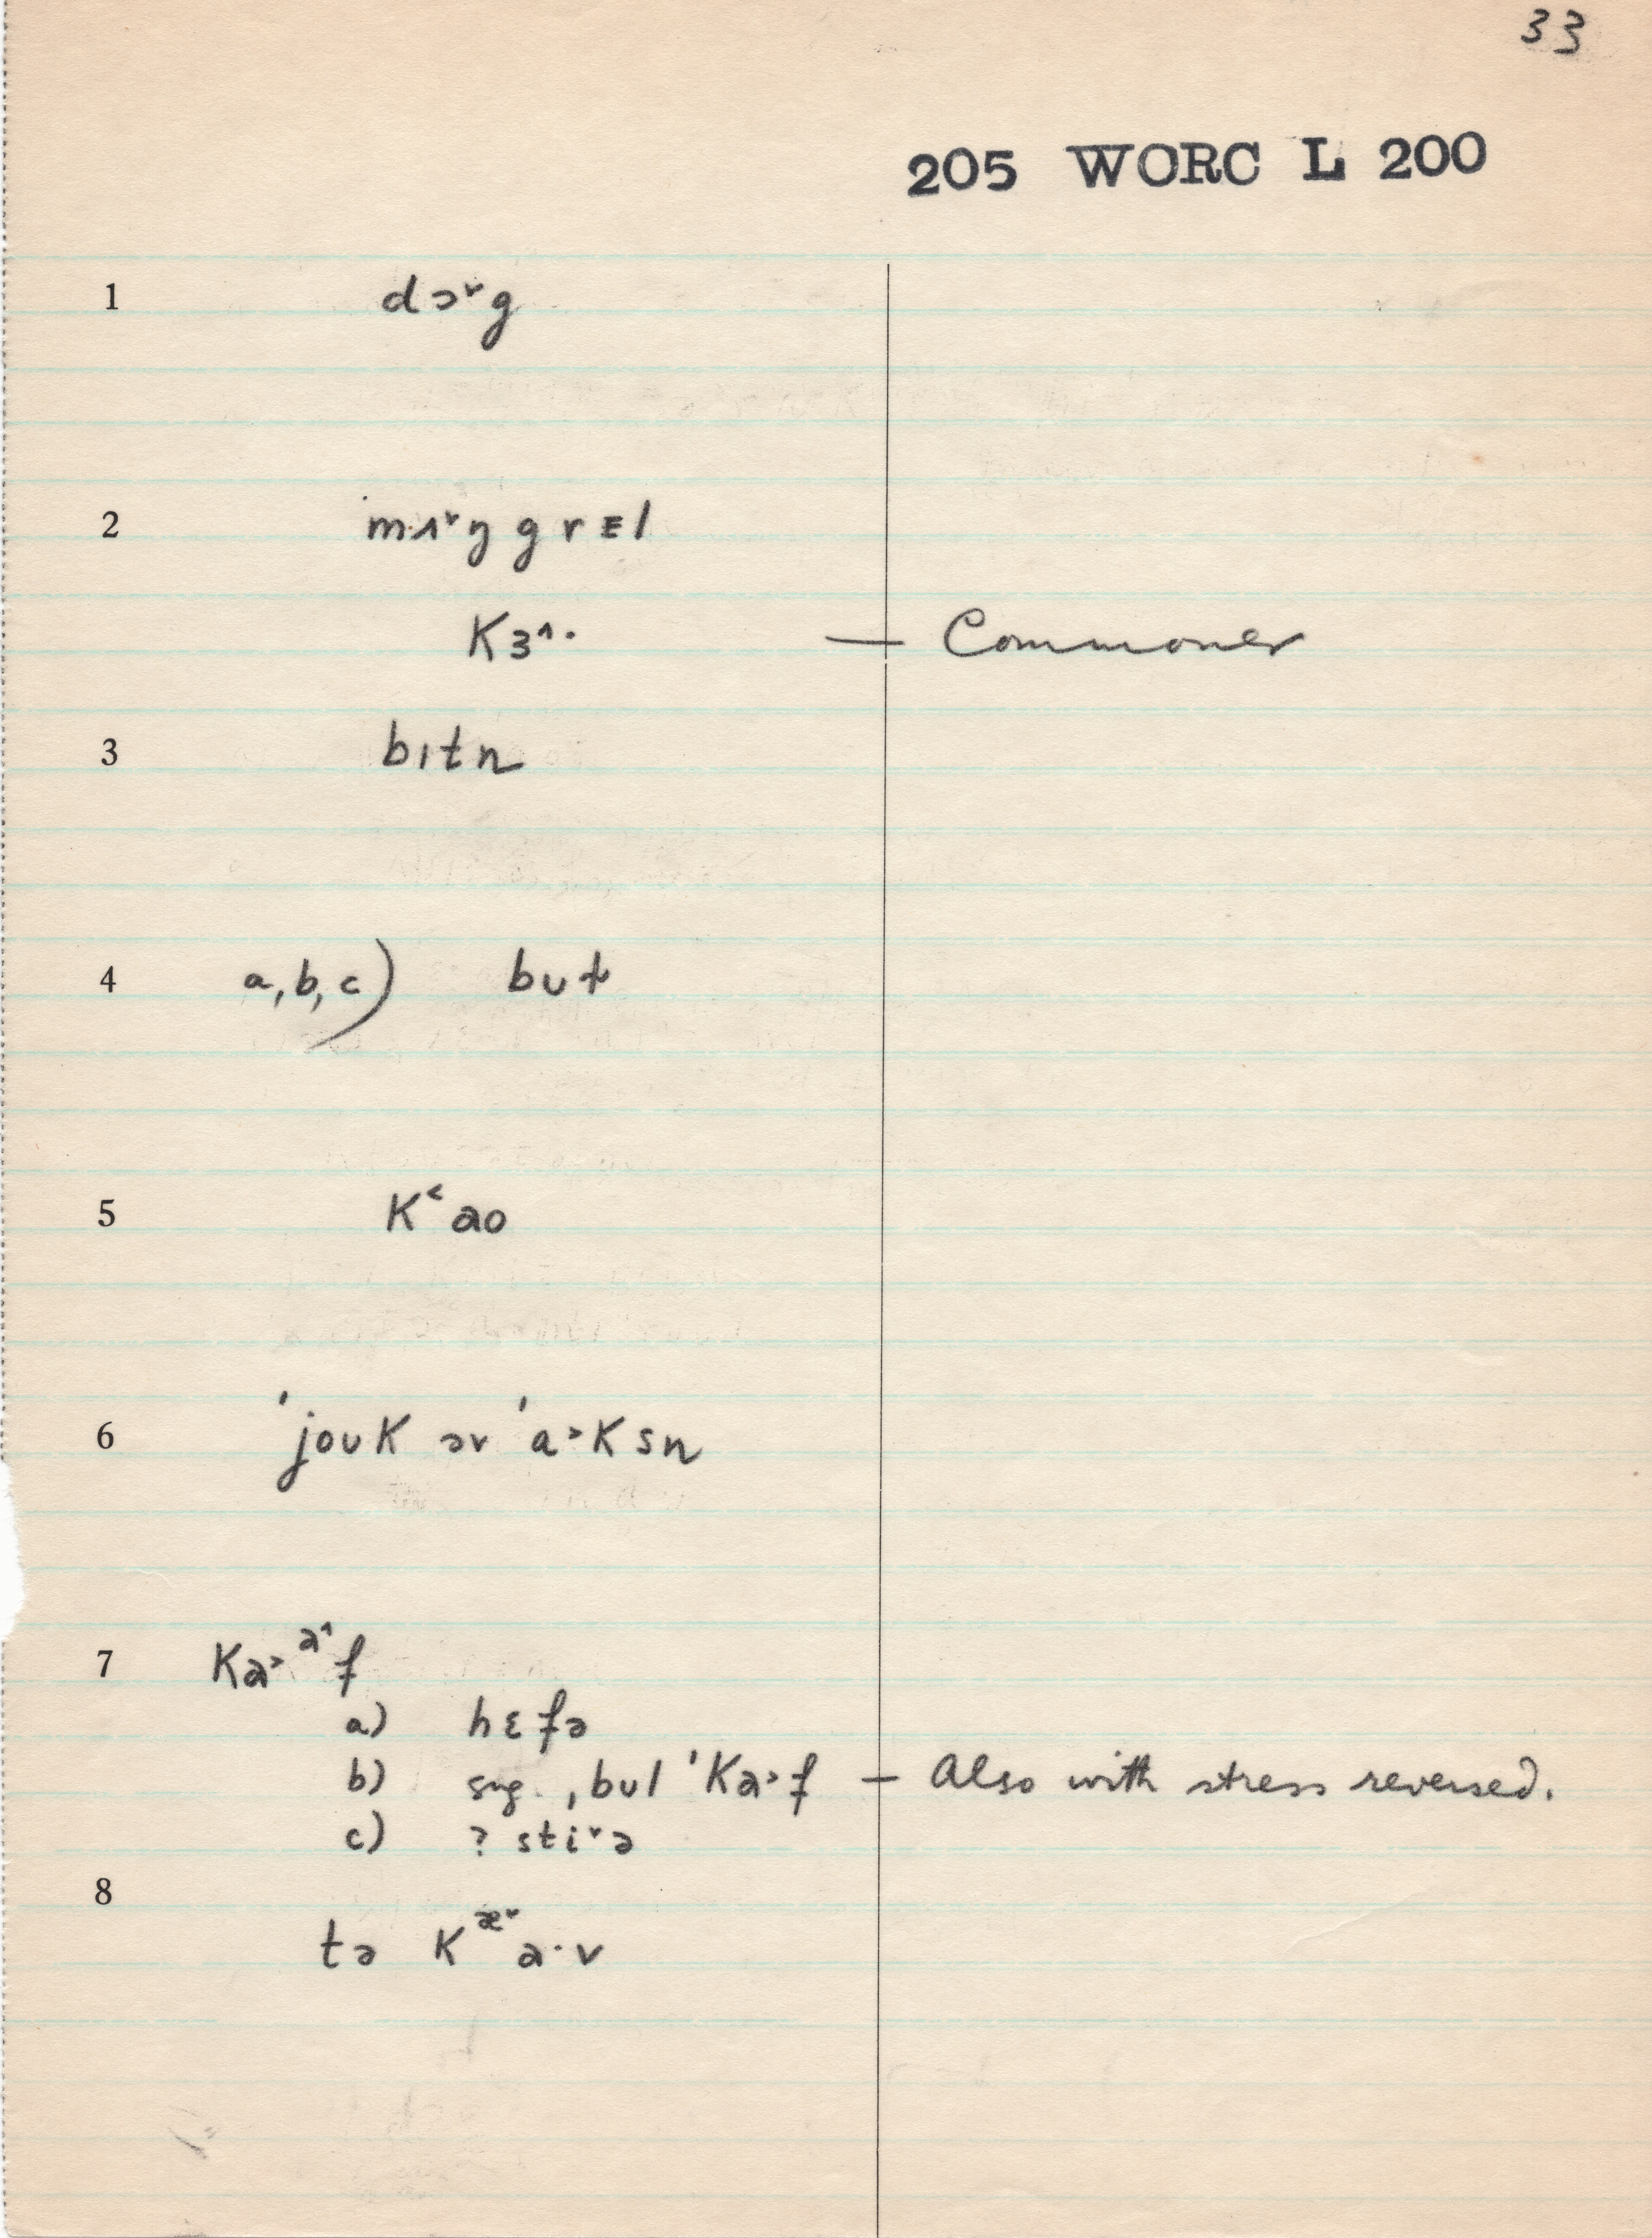 33
205 WORC L 200
1 dɔ˅g
2 mʌ˅ŋgrɛl
Kɜ˄· — Commoner
3 bɪtʃ
4 a,b,c) bʊɫ
5 K˂aʊ
6 ˈjoʊK əv ˈa˃Ksn
7 Ka˃ᵃ˄f
a) hɛfə
b) sug., bul ˈKa˃f — Also with stress reversed.
c) ? sti˅ə
8
tə Kᵆ˅a·v